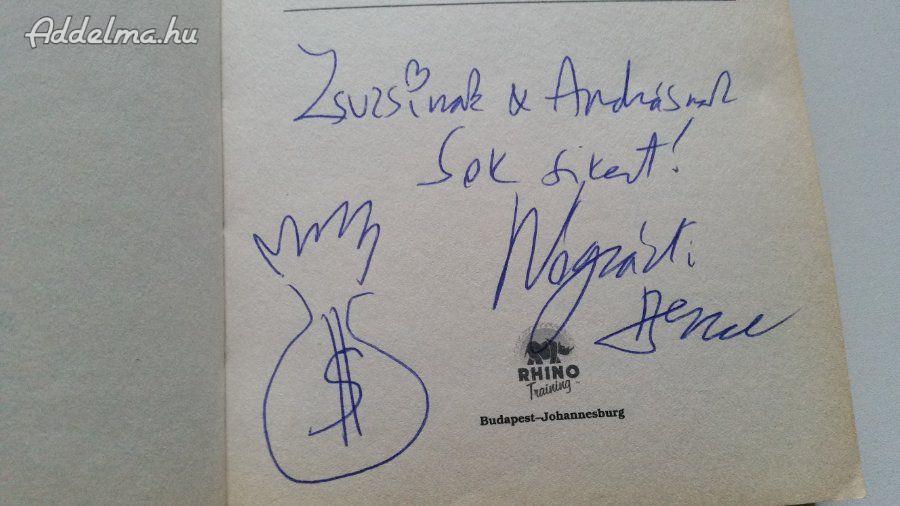 Addelma.hu
Zsuzsinak & Andrásnak
Sok sikert!
Bence
$
RHINO
Training™
Budapest–Johannesburg